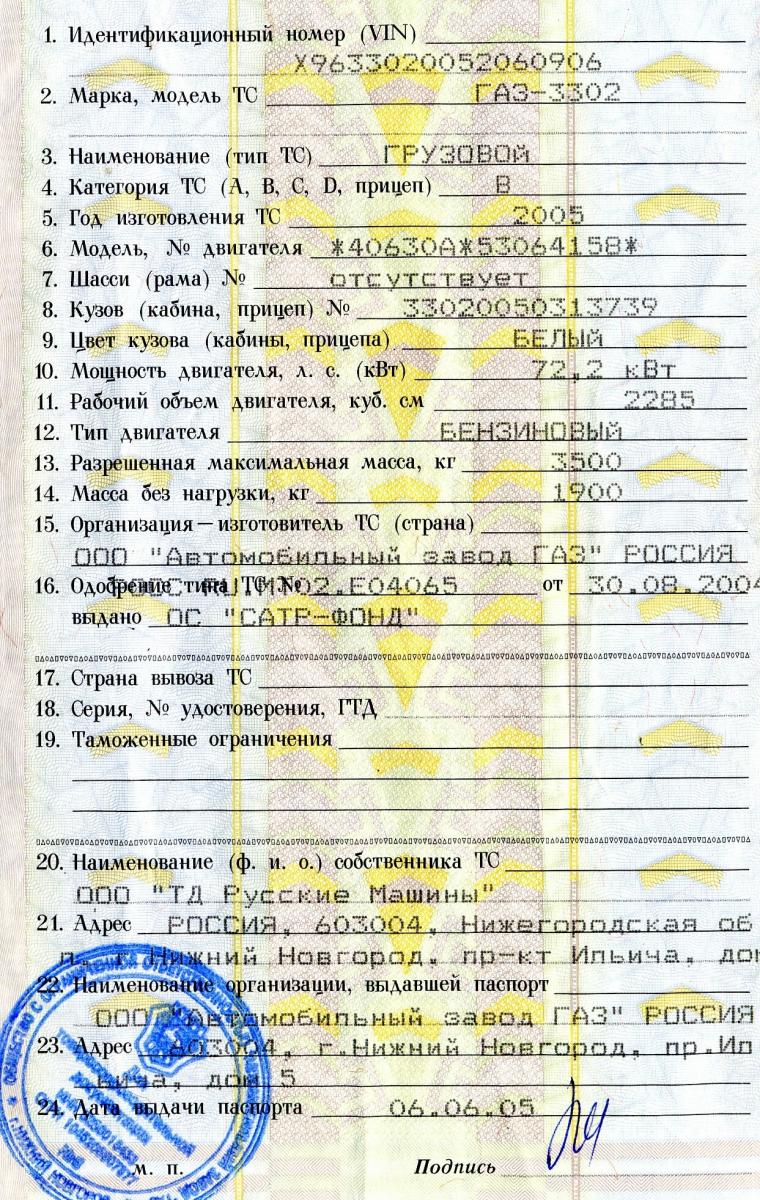 1. Идентификационный номер (VIN)
X9633020052060906
2. Марка, модель ТС ГАЗ-3302
3. Наименование (тип ТС) ГРУЗОВОЙ
4. Категория ТС (А, В, С, D, прицеп) В
5. Год изготовления ТС 2005
6. Модель, № двигателя *40630А*53064158*
7. Шасси (рама) № отсутствует
8. Кузов (кабина, прицеп) № 33020050313739
9. Цвет кузова (кабины, прицепа) БЕЛЫЙ
10. Мощность двигателя, л. с. (кВт) 72,2 кВт
11. Рабочий объем двигателя, куб. см 2285
12. Тип двигателя БЕНЗИНОВЫЙ
13. Разрешенная максимальная масса, кг 3500
14. Масса без нагрузки, кг 1900
15. Организация—изготовитель ТС (страна)
ООО "Автомобильный завод ГАЗ" РОССИЯ
16. Одобрение типа ТС № 02.Е04065 от 30.08.2004
выдано ОС "САТР-ФОНД"
17. Страна вывоза ТС
18. Серия, № удостоверения, ГТД
19. Таможенные ограничения
20. Наименование (ф. и. о.) собственника ТС
ООО "ТД Русские Машины"
21. Адрес РОССИЯ, 603004, Нижегородская об
л. г. Нижний Новгород, пр-кт Ильича, дом
22. Наименование организации, выдавшей паспорт
ООО "Автомобильный завод ГАЗ" РОССИЯ
23. Адрес 603004, г.Нижний Новгород, пр.Ил
ьича, дом 5
24. Дата выдачи паспорта 06.06.05
м. п. Подпись